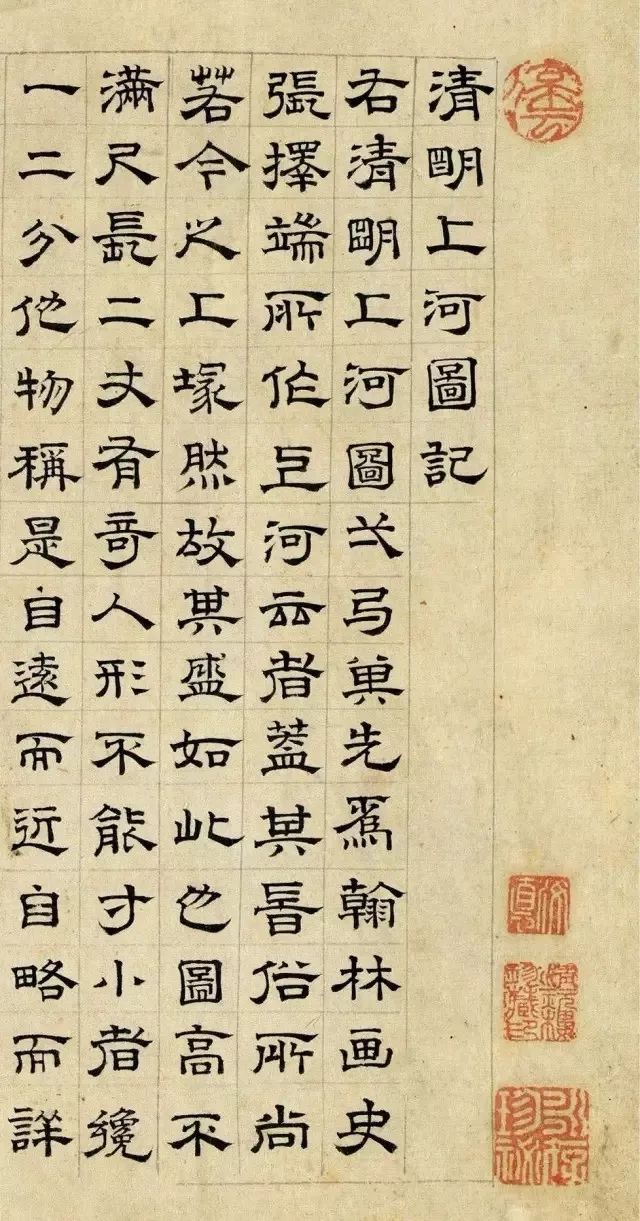 清明上河圖記
右清明上河圖弌弓先爲翰林画史
張擇端所作上河云者蓋其時俗所尚
若今之上塚然故其盛如此也圖高不
滿尺長二丈有奇人形不能寸小者纔
一二分他物稱是自遠而近自略而詳